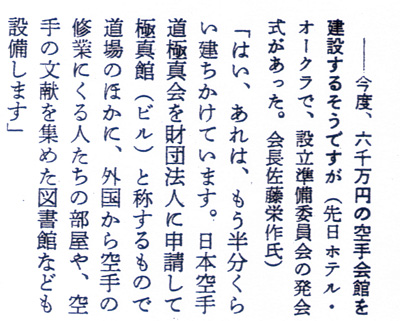 ――今度、六千万円の空手会館を
建設するそうですが（先日ホテル・
オークラで、設立準備委員会の発会
式があった。会長佐藤栄作氏）
「はい、あれは、もう半分くら
い建ちかけています。日本空手
道極真会を財団法人に申請して
極真館（ビル）と称するもので
道場のほかに、外国から空手の
修業にくる人たちの部屋や、空
手の文献を集めた図書館なども
設備します」